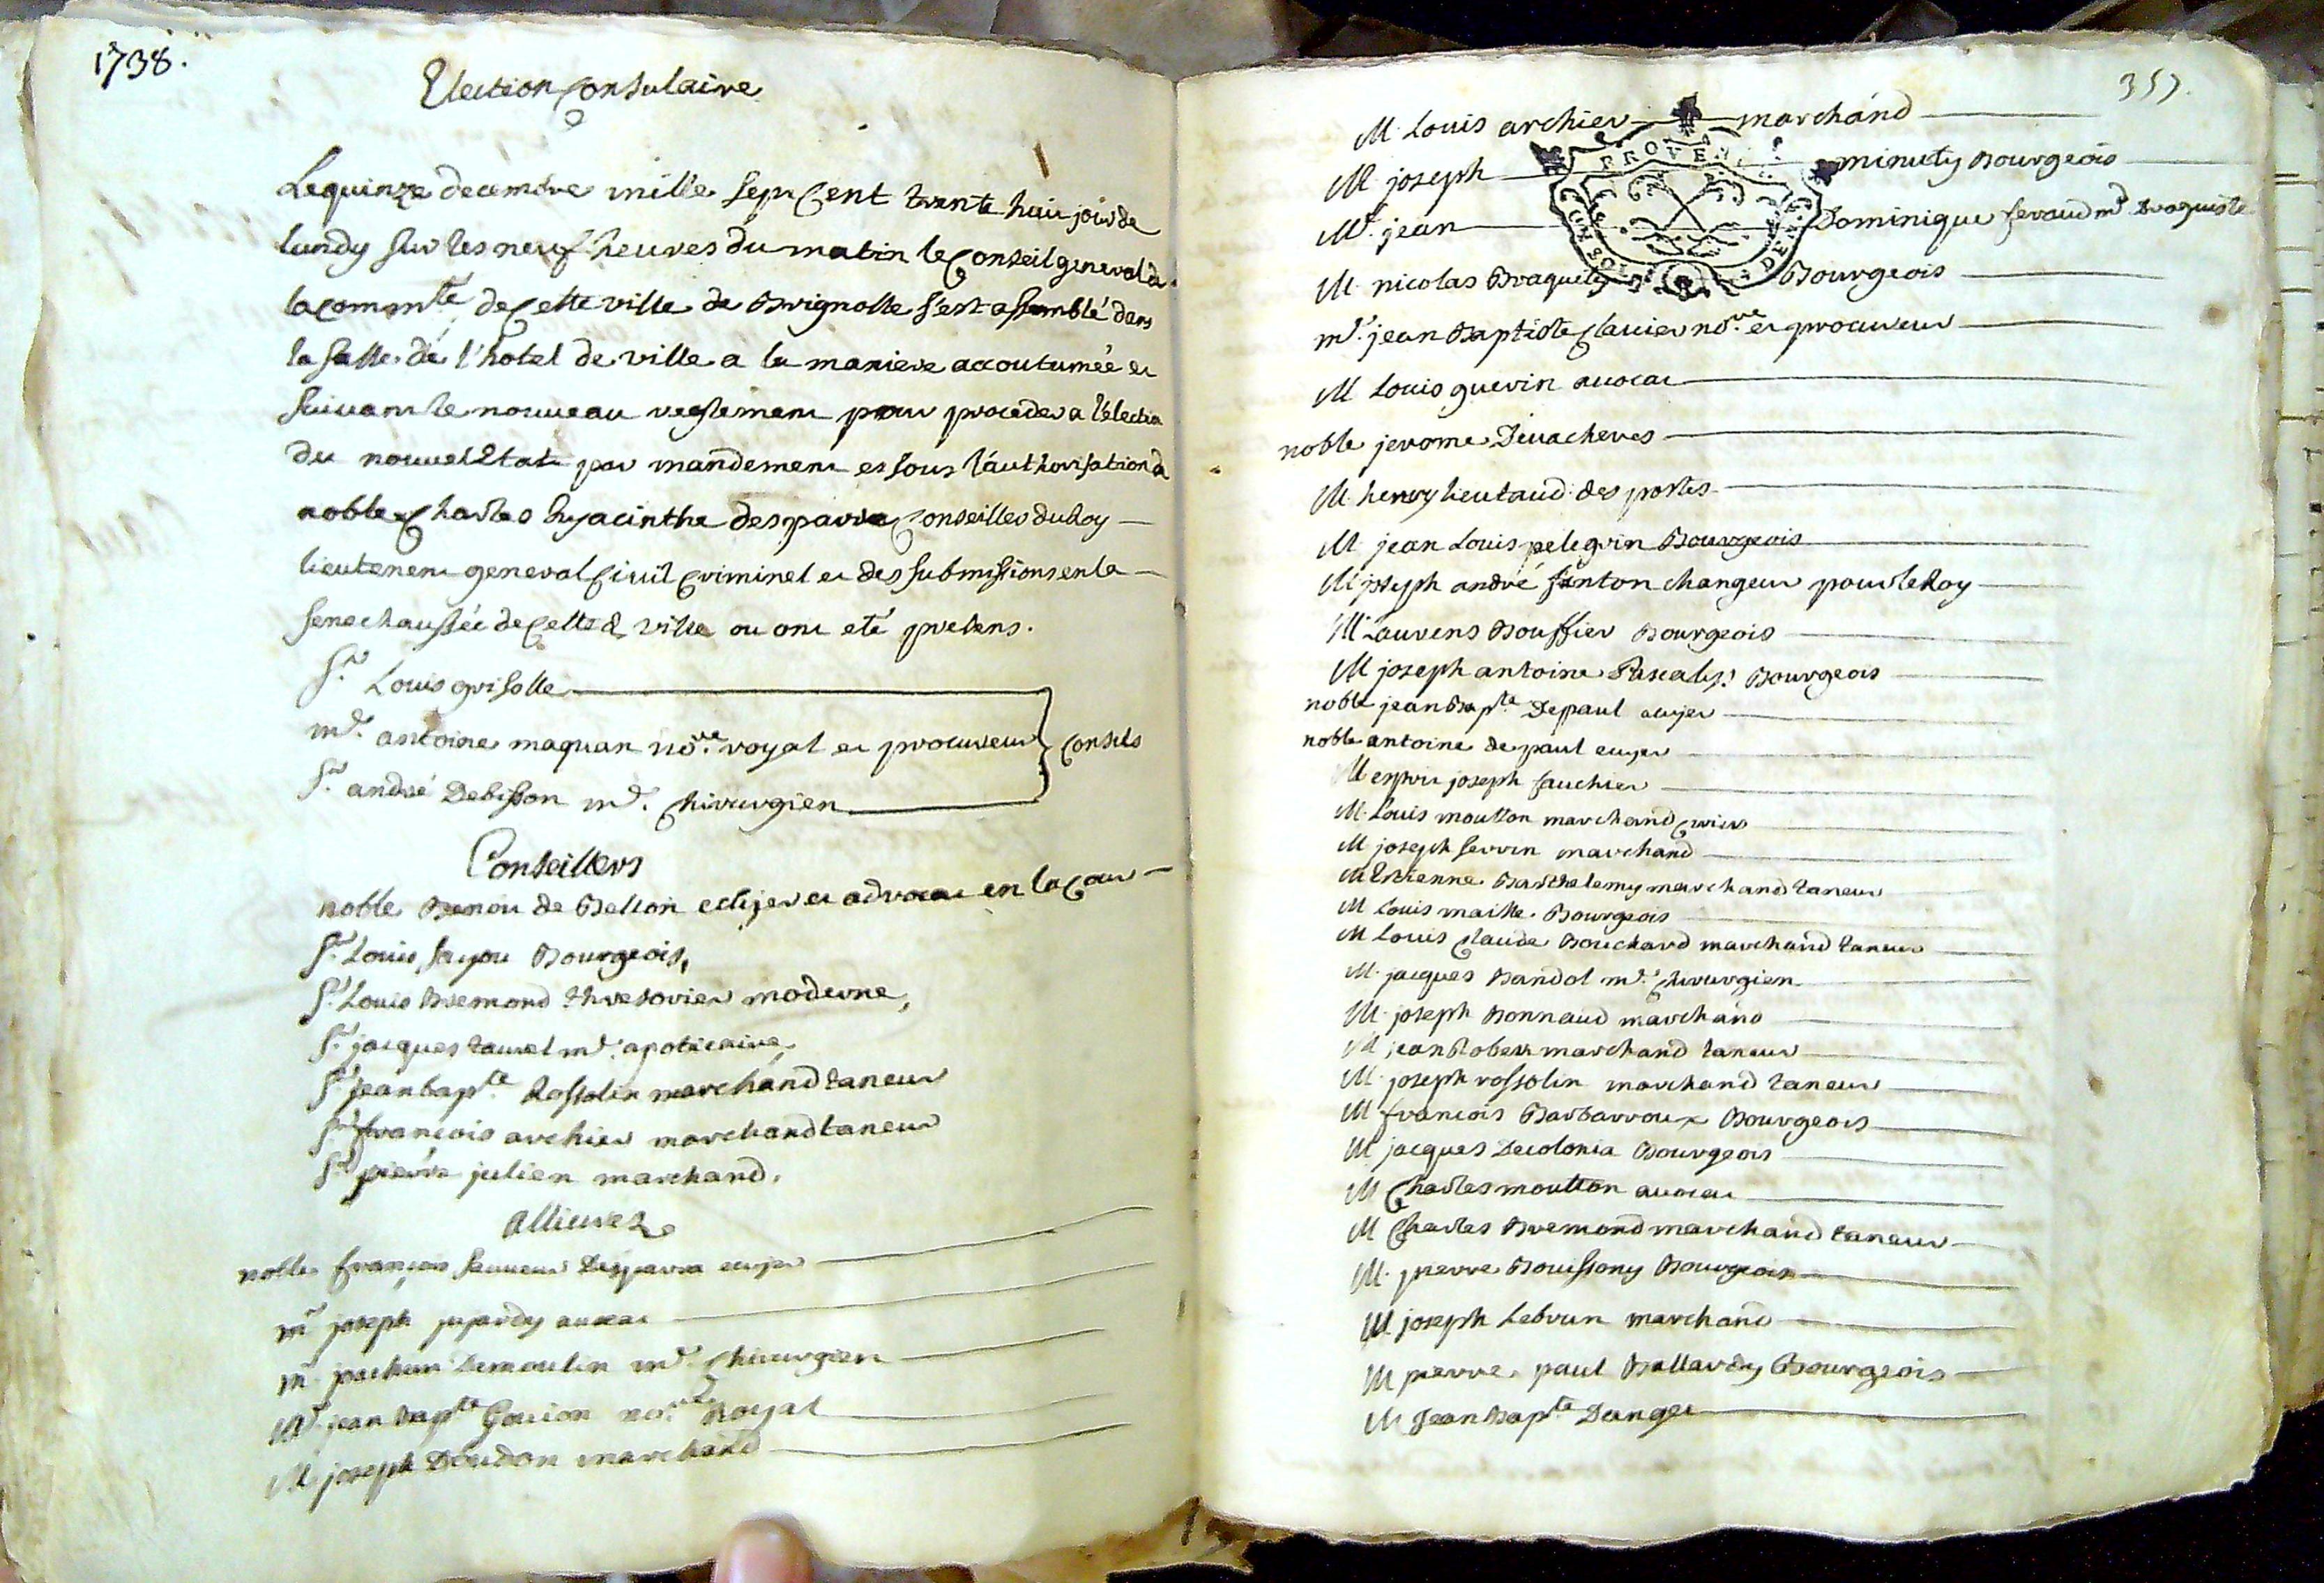 1738.
Election Consulaire
Le quinze decembre mille sept Cent trente huit jour de
lundy sur les neuf heures du matin le Conseil general de
la commté de Cette ville de Brignolle s'est assemblé dans
la salle de l'hotel de ville a la maniere accoutumée et
suivant le nouveau reglement pour proceder a l'election
du nouvel Etat par mandement et sous l'authorisation de
noble Charles hyacinthe desparra Conseiller du Roy
lieutenent general Civil Criminel et des submissions en la
senechaussée de Cette d. ville ou ont eté presens.
Sr. Louis grisolle
me. antoine maquan nore. royal et procureur
Consuls
Sr. andré Debisson me. Chirurgien
Conseillers
noble de Bellon ecuyer et advocat en la Cour
Sr. Louis Bourgeois,
Sr. Louis Bremond thresorier moderne,
Sr. jacques taurel me. apoticaire,
Sr. jean bapte. Rossolin marchand taneur
Sr. françois archier marchand taneur
Sr. pierre julien marchand.
Allieurez
noble françois Desparra ecuyer
M joseph jujardy avocat
M Demoulin me. Chirurgien
Mr. jean bapte Goujon nore. Royal
M joseph Doudon marchand
357.
M Louis archier marchand
PROVEN
M joseph minuty Bourgeois
Mr. jean Dominique feraud md droguiste
M. nicolas Braquety Bourgeois
me. jean Baptiste Clavier nore. et procureur
M Louis guerin avocat
noble jerome Devacheres
M. henry lieutaud des portes
M jean Louis pelegrin Bourgeois
M joseph andré fanton changeur pour le Roy
M Laurens Bouffier Bourgeois
M joseph antoine Pascalis Bourgeois
noble jean Bapte Depaul ecuyer
noble antoine de paul ecuyer
M esprit joseph fauchier
M. Louis moutton marchand Cirier
M joseph serrin marchand
M Estienne Barthelemy marchand taneur
M Louis maille Bourgeois
M Louis Claude Bouchard marchand taneur
M. jacques Bandol me. Chirurgien
M. joseph Bonnaud marchand
M jean Robert marchand taneur
M. joseph rossolin marchand taneur
M françois Barbarroux Bourgeois
M jacques Decolonia Bourgeois
M Charles moutton avocat
M Charles Bremond marchand taneur
M. pierre Bouissony Bourgeois
M joseph Lebrun marchand
M pierre paul Ballardy Bourgeois
M Jean bapte Danger